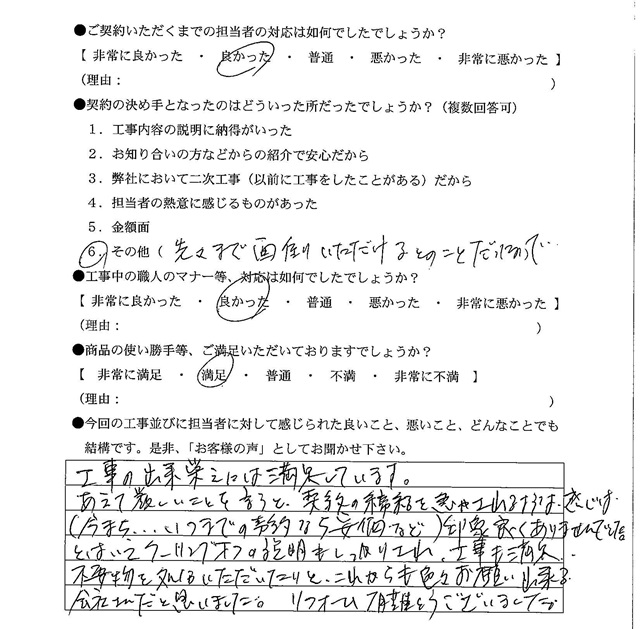 ●ご契約いただくまでの担当者の対応は如何でしたでしょうか？
【 非常に良かった ・ 良かった ・ 普通 ・ 悪かった ・ 非常に悪かった 】
（理由： ）
●契約の決め手となったのはどういった所だったでしょうか？（複数回答可）
１．工事内容の説明に納得がいった
２．お知り合いの方などからの紹介で安心だから
３．弊社において二次工事（以前に工事をしたことがある）だから
４．担当者の熱意に感じるものがあった
５．金額面
６．その他（ 先々まで面倒いただけるとのことだったので…
●工事中の職人のマナー等、対応は如何でしたでしょうか？
【 非常に良かった ・ 良かった ・ 普通 ・ 悪かった ・ 非常に悪かった 】
（理由： ）
●商品の使い勝手等、ご満足いただいておりますでしょうか？
【 非常に満足 ・ 満足 ・ 普通 ・ 不満 ・ 非常に不満 】
（理由： ）
●今回の工事並びに担当者に対して感じられた良いこと、悪いこと、どんなことでも
結構です。是非、「お客様の声」としてお聞かせ下さい。
工事の出来栄えには満足しています。
あえて厳しいことを言うと、契約の締結を 感じは
(今なら...いつまでの契約なら安価など)印象良くありませんでした
とはいえクーリングオフの説明もしっかりされ、工事も満足、
不要物を処分いただいたりと、これからも色々お願い出来る
会社だと思いました。 リフォーム有難うございました